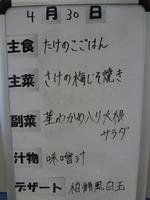 4月30日
主食 たけのこごはん
主菜 さけの梅じそ焼き
副菜 茎わかめ入り大根
サラダ
汁物 味噌汁
デザート 柏餅風白玉